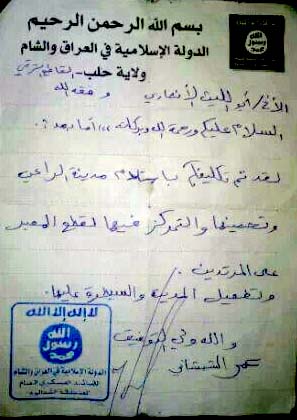 بسم الله الرحمن الرحيم
الدولة الإسلامية في العراق والشام
ولاية حلب - القاطع الشرقي
الله
رسول
محمد
الأخ / أبو الليث الأنصاري وفقه الله
السلام عليكم ورحمة الله وبركاته ،،، أما بعد :
لقد تم تكليفكم باستلام مدينة الراعي
وتحصينها والتمركز فيها لقطع المعبر
على المرتدين .
وتطهيل المدينة والسيطرة عليها .
والله ولي التوفيق
عمر الشيشاني
لا إله إلا الله
الله
رسول
محمد
الدولة الإسلامية في العراق والشام
القائد العسكري العام
المنطقة الشمالية